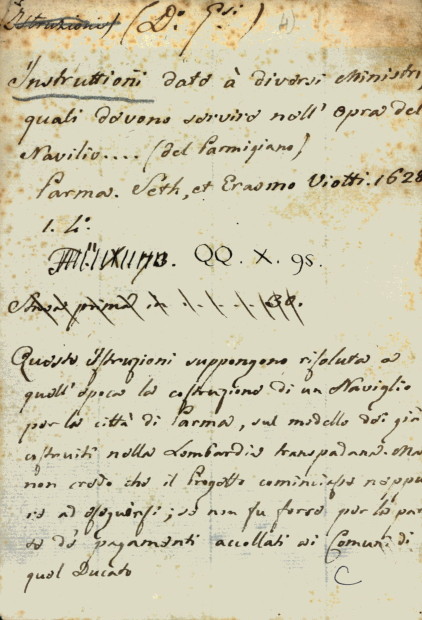 (Dº Gsi.) 4)
Instruttioni date à diversi Ministri,
quali devono servire nell' Opra del
Navilio.... (del Parmigiano)
Parma. Seth, et Erasmo Viotti. 1628
1. 4º.
QQ. X. 95.
Queste Istruzioni suppongono risoluta a
quell'epoca la costruzione di un Naviglio
per la città di Parma, sul modello dei già
costruiti nella Lombardia transpadana. Ma
non credo che il Progetto cominciasse neppu
re ad eseguirsi; se non fu forse per la par
te de' pagamenti accollati ai Comuni di
quel Ducato
C